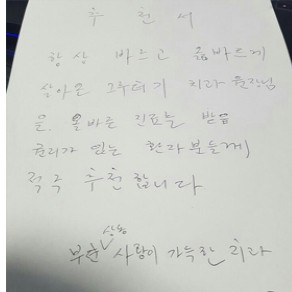 추천서
항상 바르고 올바르게
살아온 그루터기 치과 원장님
을. 올바른 진료를 받을
권리가 있는 환자분들께,
적극 추천합니다
부산 사랑이 가득한 치과